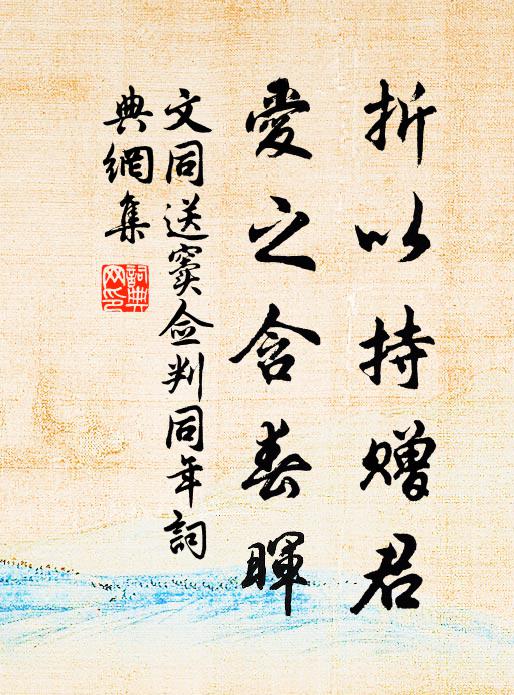 折以持赠君
愛之含春暉
文同送窦佥判同年詞
典網集
詞典
网印